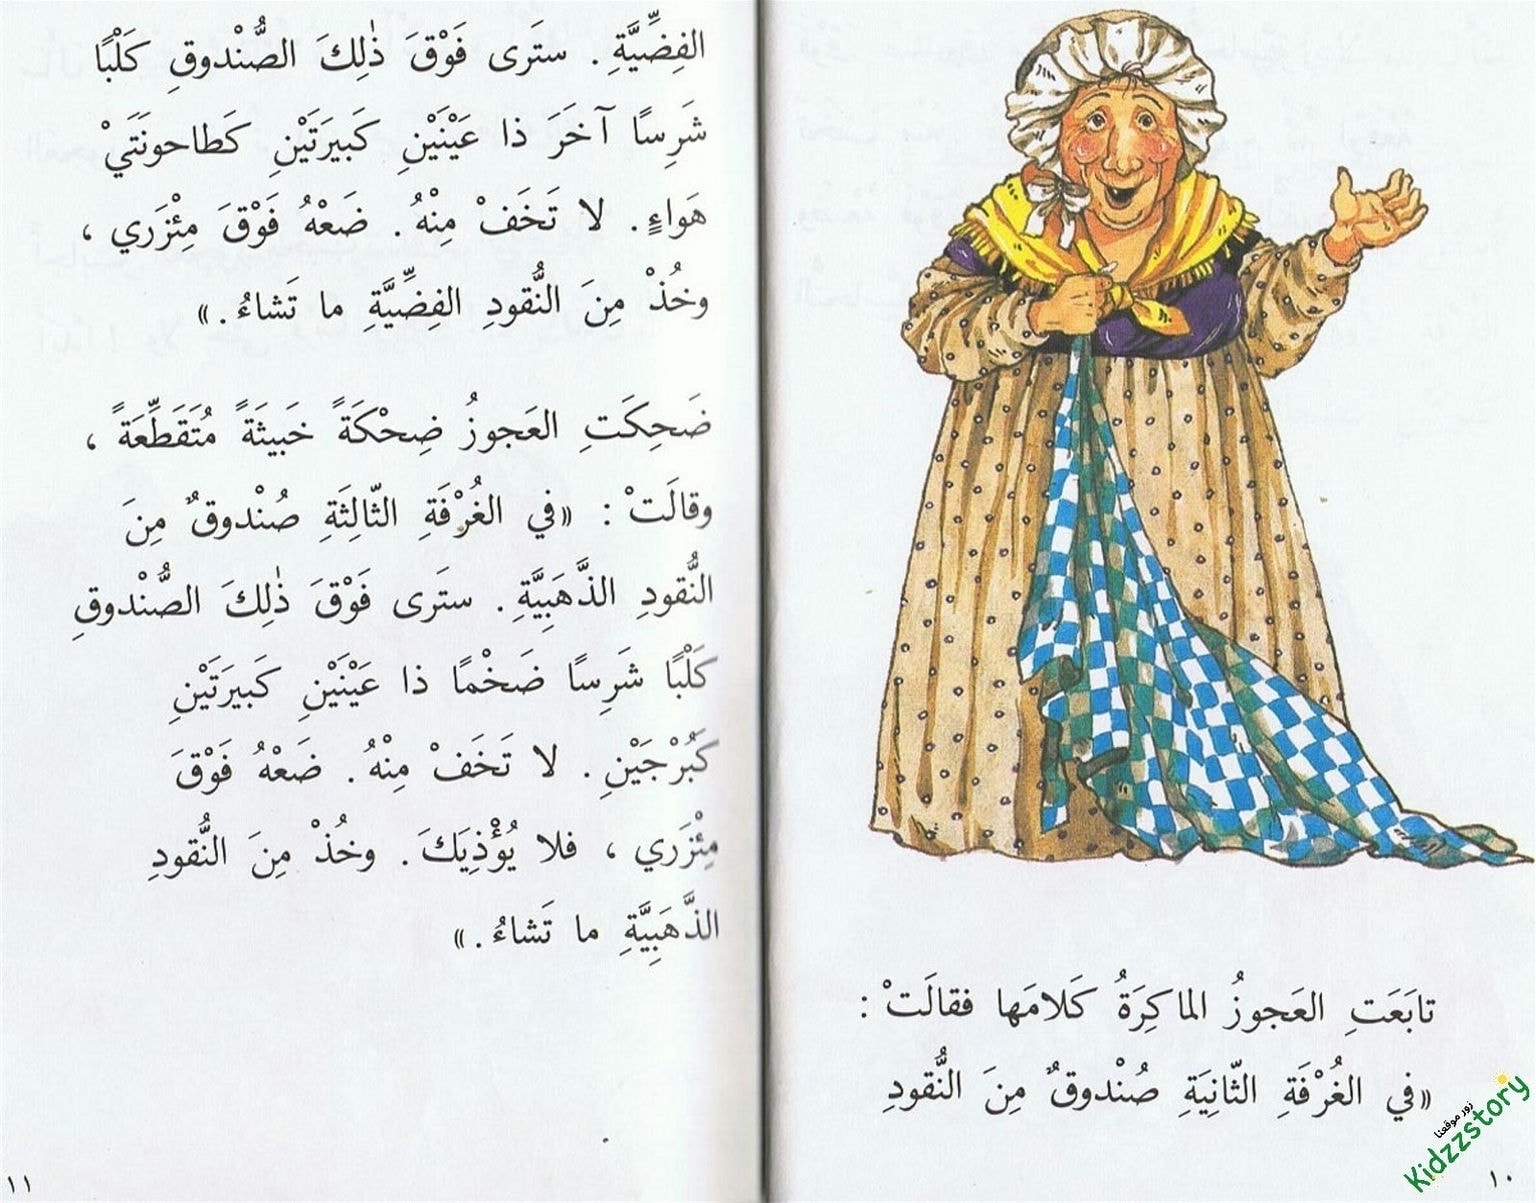 تابَعَتِ العَجوزُ الماكِرَةُ كَلامَها فقالَتْ :
«في الغُرْفَةِ الثّانِيَةِ صُنْدوقٌ مِنَ النُّقودِ
زور موقعنا
Kidzzstory
١٠
الفِضِّيَّةِ . ستَرى فَوْقَ ذٰلِكَ الصُّنْدوقِ كَلْبًا
شَرِسًا آخَرَ ذا عَيْنَيْنِ كَبيرَتَيْنِ كَطاحونَتَيْ
هَواءٍ. لا تَخَفْ مِنْهُ. ضَعْهُ فَوْقَ مِئْزَري ،
وخُذْ مِنَ النُّقودِ الفِضِّيَّةِ ما تَشاءُ.»
ضَحِكَتِ العَجوزُ ضِحْكَةً خَبيثَةً مُتَقَطِّعَةً ،
وقالَتْ : «في الغُرْفَةِ الثّالِثَةِ صُنْدوقٌ مِنَ
النُّقودِ الذَّهَبِيَّةِ . ستَرى فَوْقَ ذٰلِكَ الصُّنْدوقِ
كَلْبًا شَرِسًا ضَخْمًا ذا عَيْنَيْنِ كَبيرَتَيْنِ
كَبُرْجَيْنِ . لا تَخَفْ مِنْهُ. ضَعْهُ فَوْقَ
مِئْزَري ، فلا يُؤْذِيَكَ . وخُذْ مِنَ النُّقودِ
الذَّهَبِيَّةِ ما تَشاءُ.»
١١